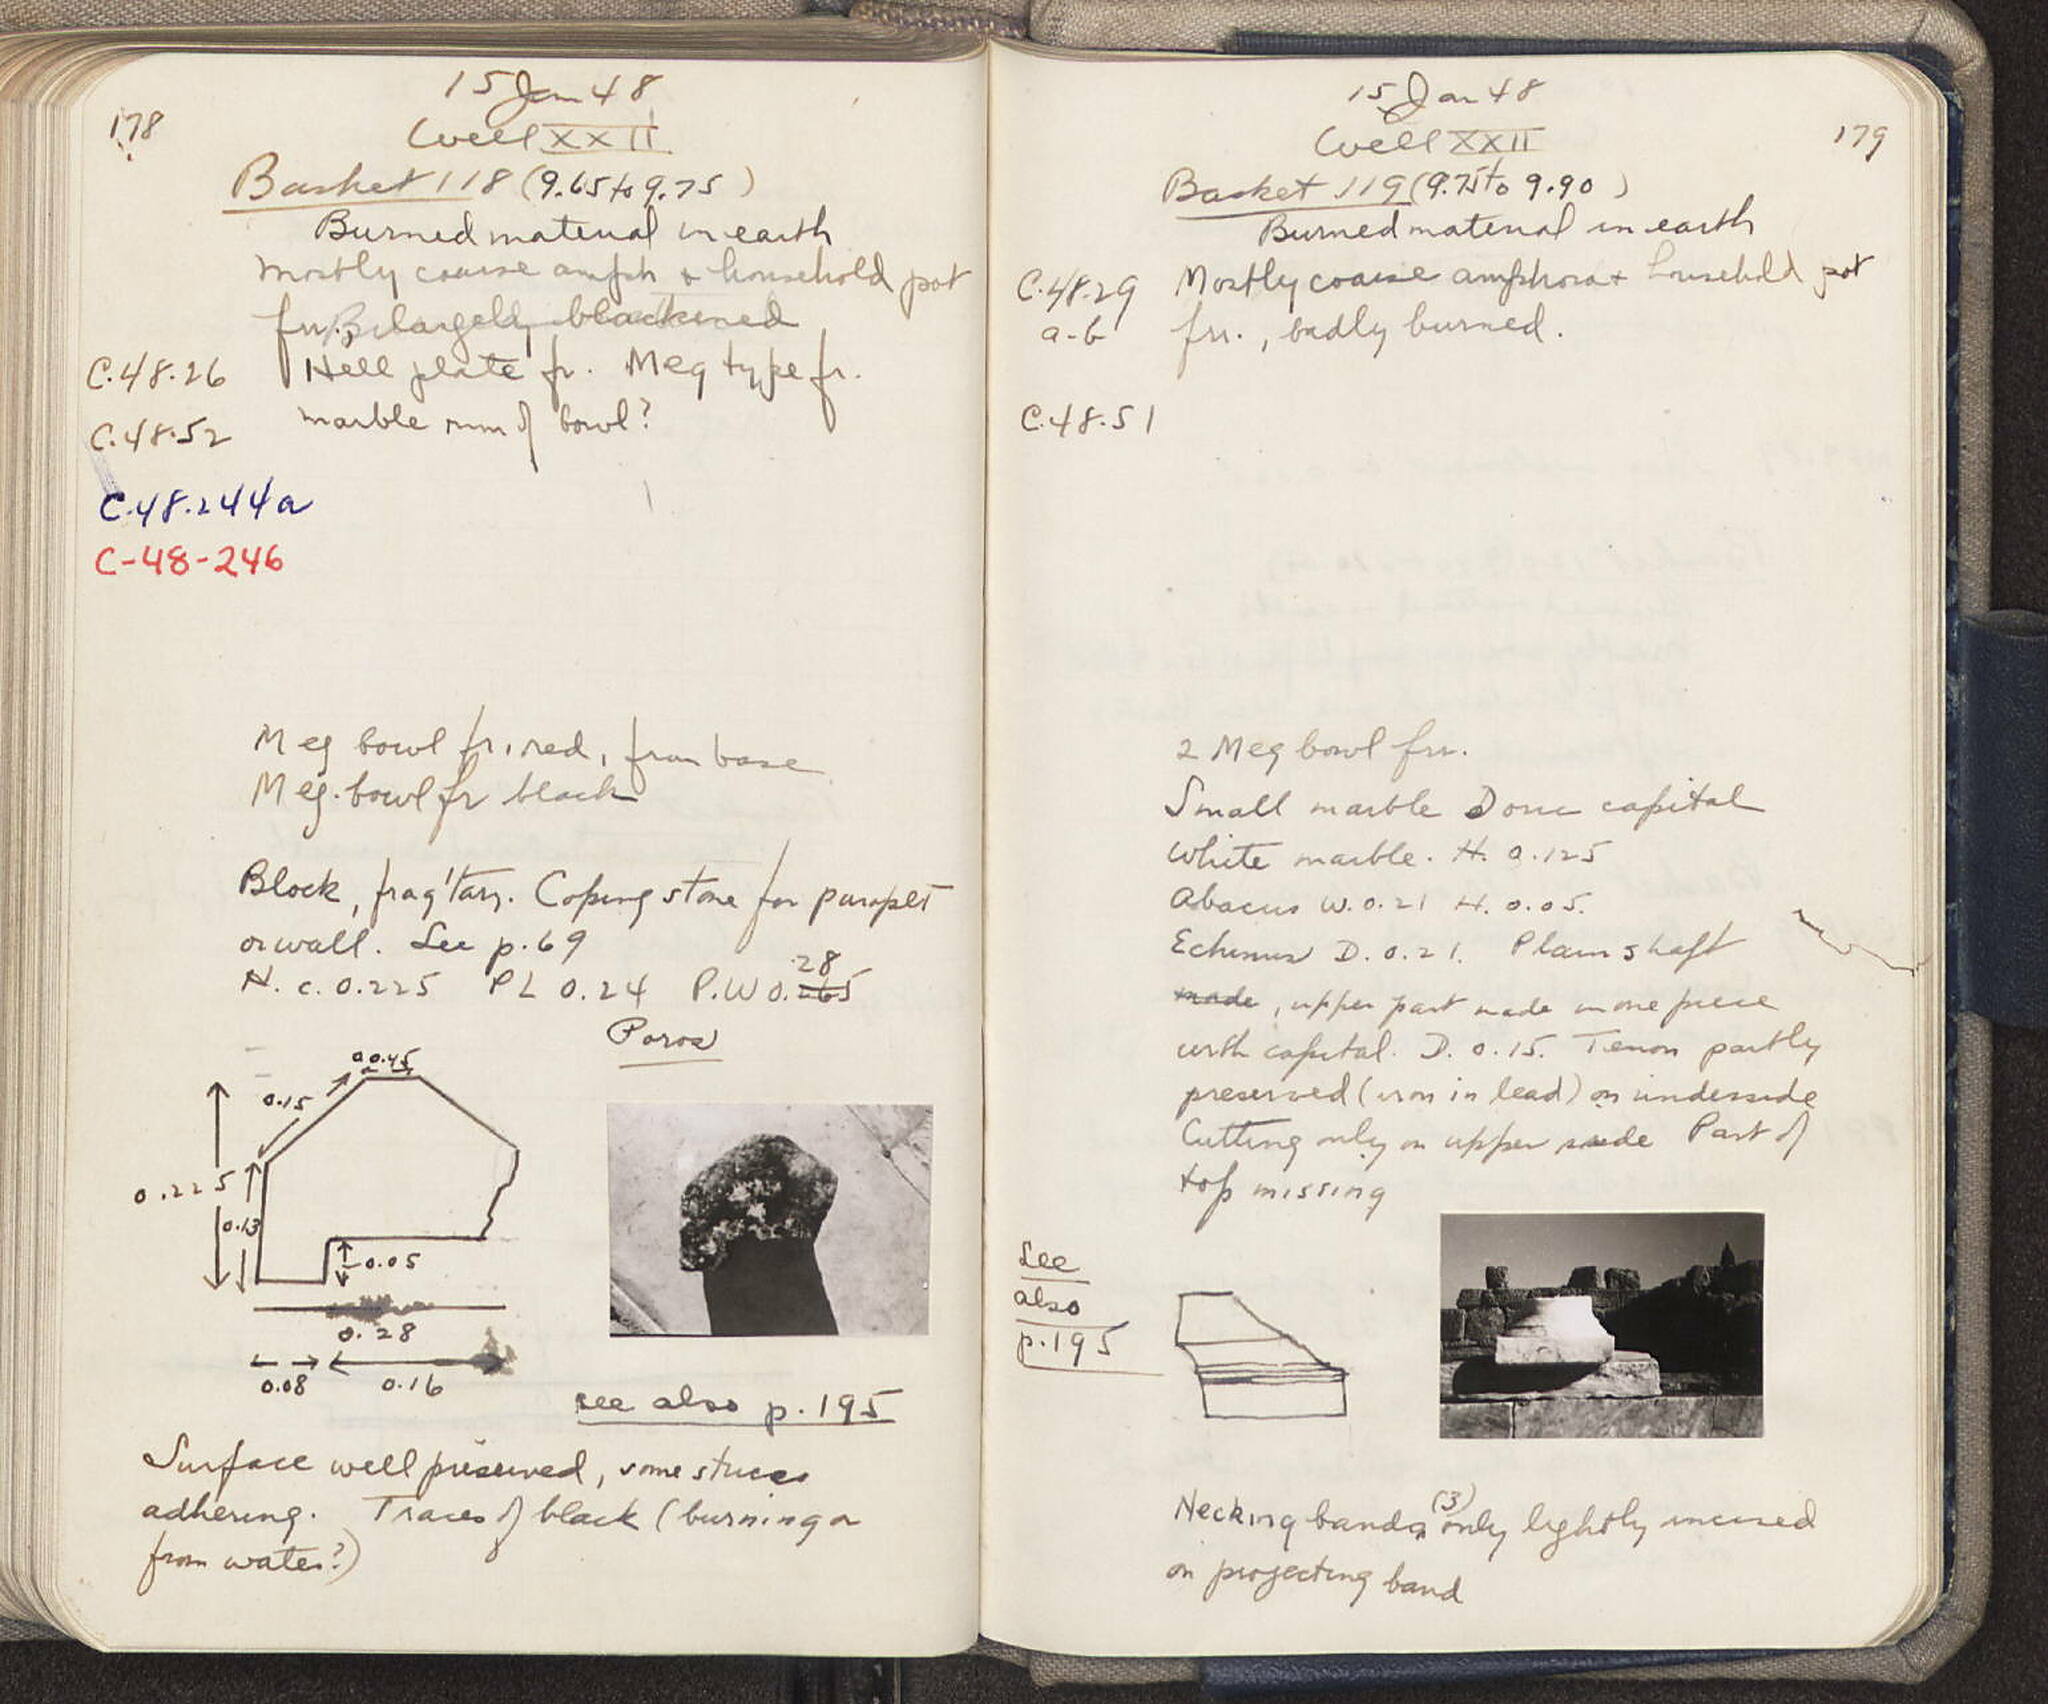 178
15 Jan 48
Well XXII
Basket 118 (9.65 to 9.75)
Burned material in earth
Mostly coarse amph & household pot
frr, largely blackened
C.48.26 Hell plate fr. Meg type fr.
C.48.52 marble rim of bowl?
C.48.244a
C-48-246
Meg bowl fr, red, from base
Meg. bowl fr black
Block, frag'tary. Coping stone for parapet
or wall. See p. 69
H. c. 0.225 PL 0.24 P.W 0.265 28
Poros
0.045
0.15
0.225
0.13
0.05
0.28
0.08 0.16
see also p. 195
Surface well preserved, some stucco
adhering. Traces of black (burning or
from water?)
15 Jan 48
179
Well XXII
Basket 119 (9.75 to 9.90)
Burned material in earth
C.48.29 Mostly coarse amphora & household pot
a-b frr., badly burned.
C.48.51
2 Meg bowl frr.
Small marble Doric capital
White marble. H. 0.125
Abacus W. 0.21 H. 0.05.
Echinus D. 0.21. Plain shaft
made, upper part made in one piece
with capital. D. 0.15. Tenon partly
preserved (iron in lead) on underside
Cutting only on upper side Part of
top missing
See
also
p. 195
Necking bands (3) only lightly incised
on projecting band